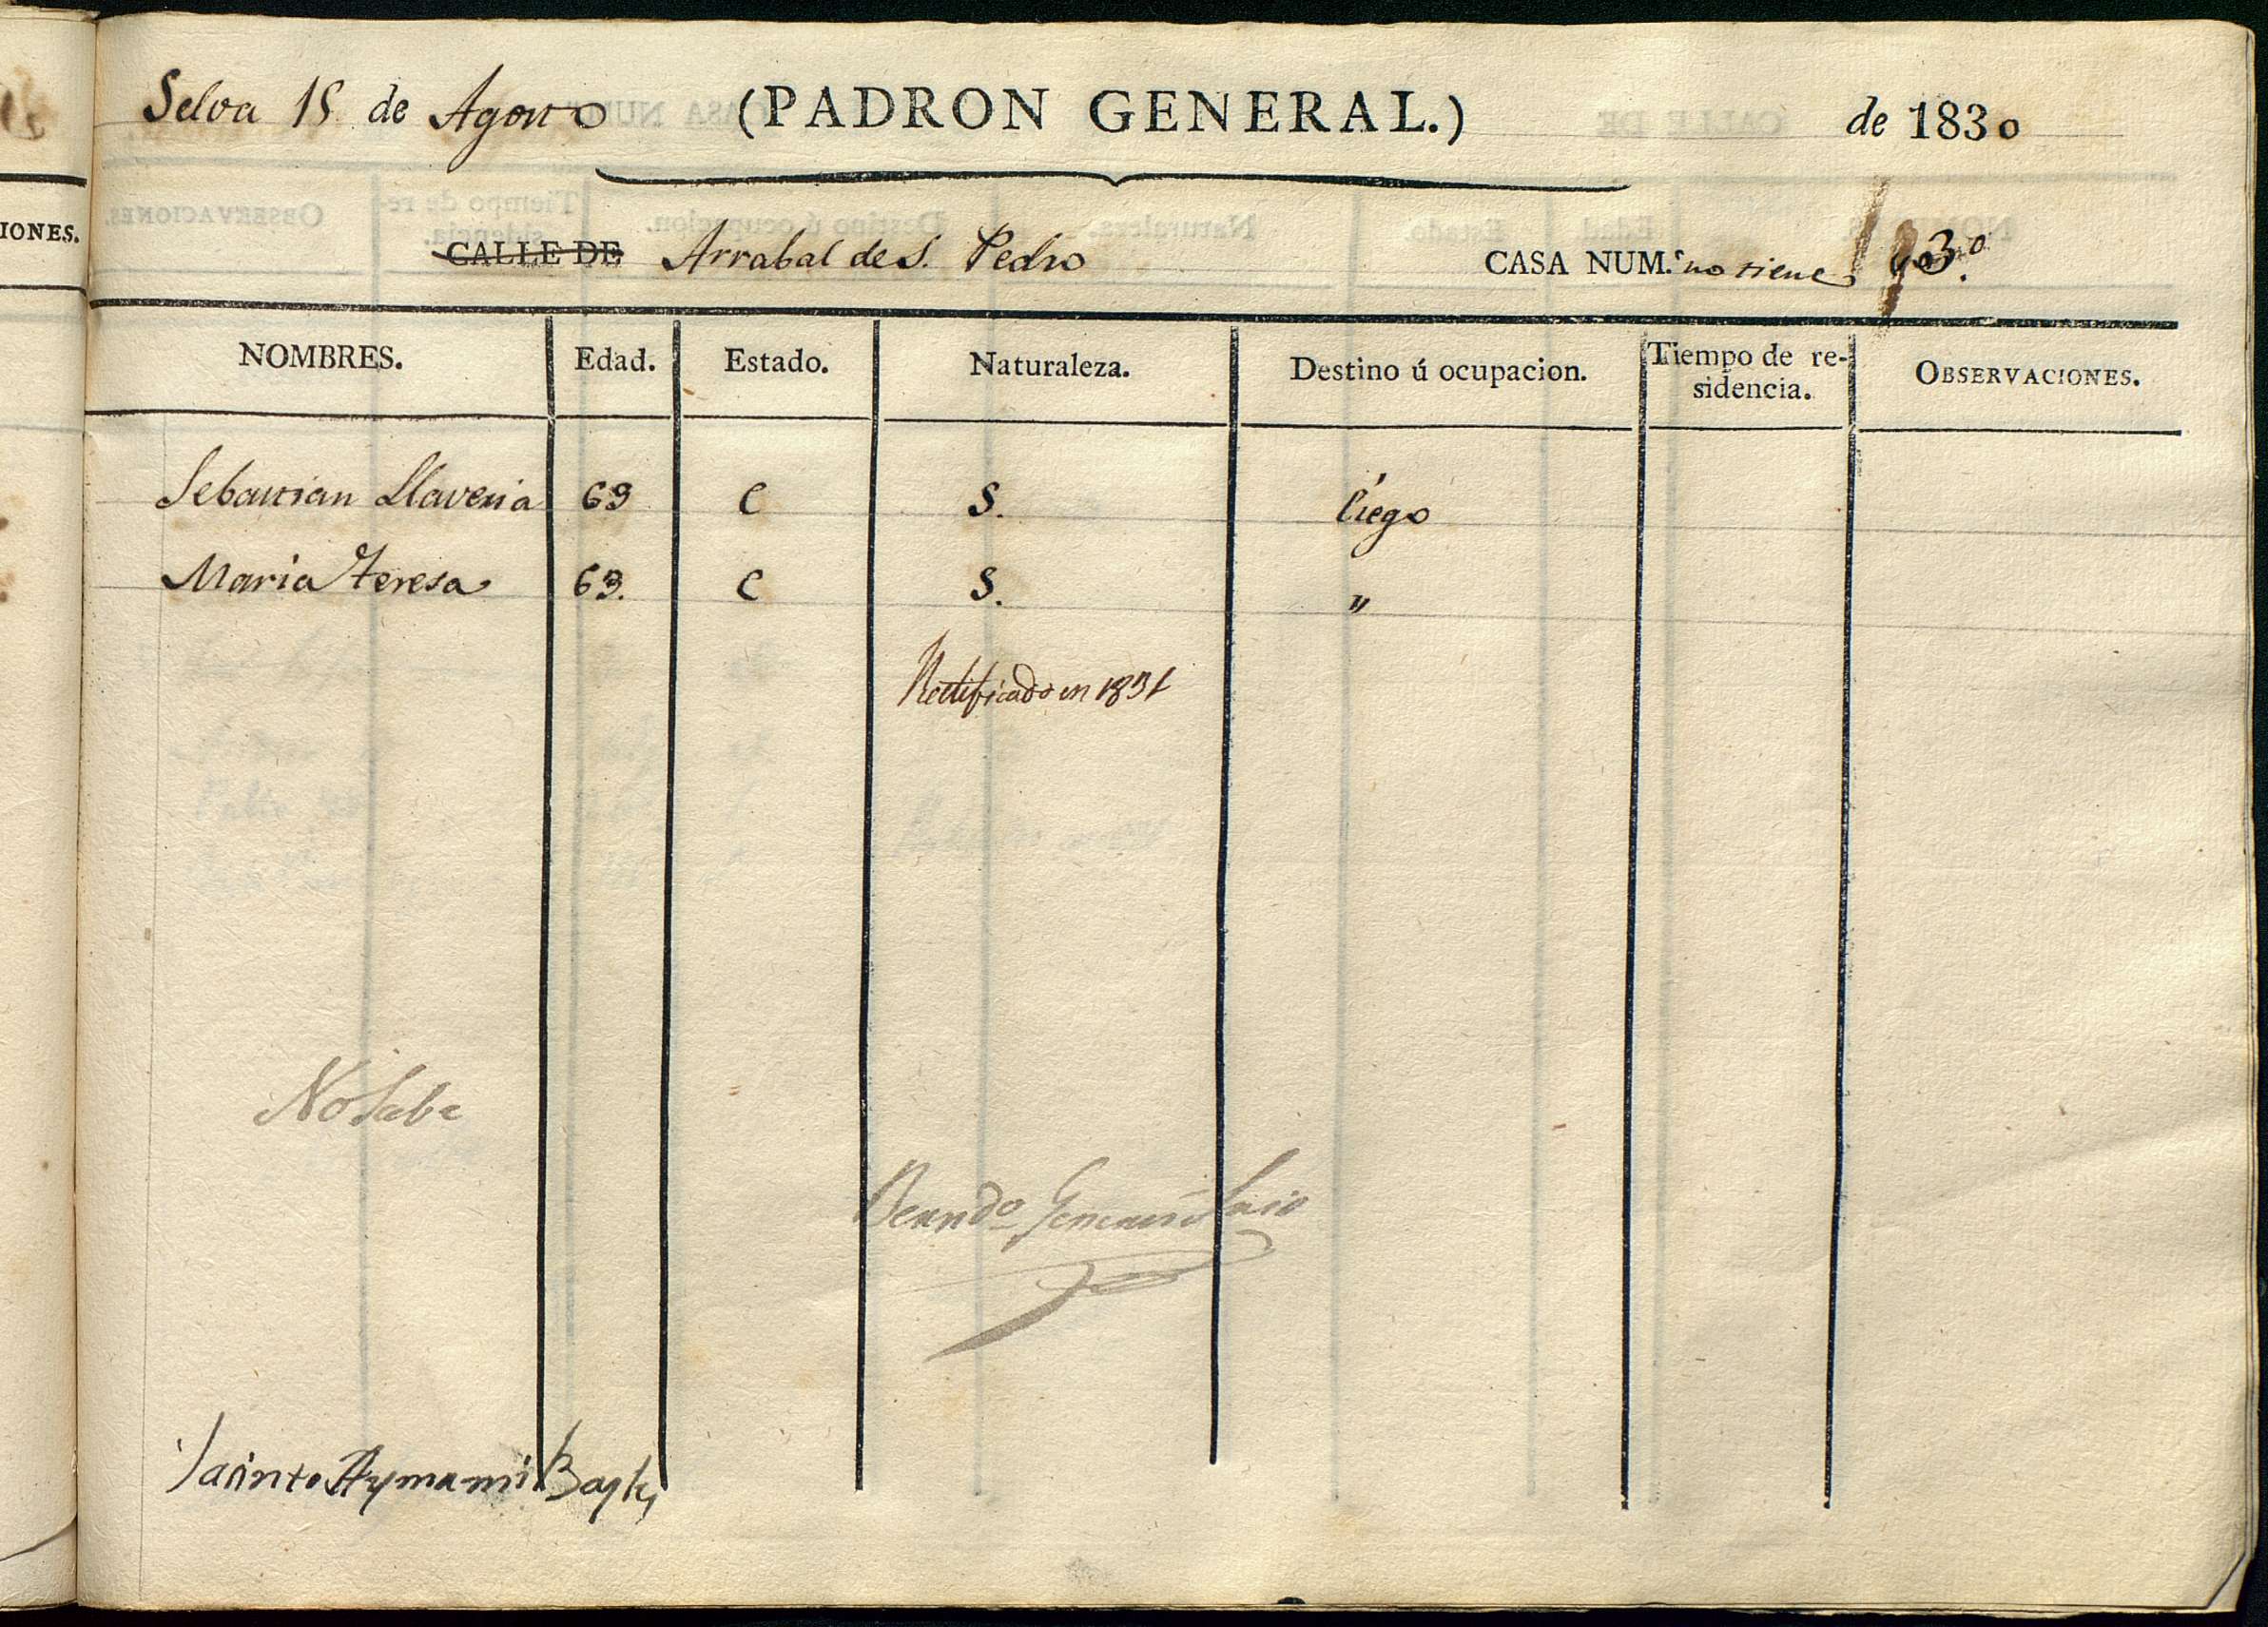 IONES.
Selva 15 de Agosto (PADRON GENERAL.) de 1830
CALLE DE Arrabal de S. Pedro CASA NUM.º no tiene
NOMBRES. Edad. Estado. Naturaleza. Destino ú ocupacion. Tiempo de re-
sidencia. OBSERVACIONES.
Sebastian Llaveria 69 C S. Ciego
Maria Teresa 63. C S. "
Rectificado en 1831
No Sabe
Jacinto Aymami Bayle